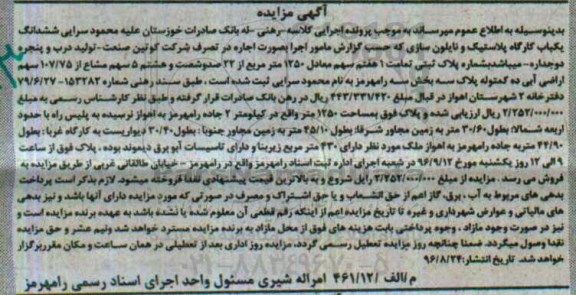 آگهی مزایده
بدینوسیله به اطلاع عموم میرساند به موجب پرونده اجرایی کلاسه -رهنی -له بانک صادرات خوزستان علیه محمود سرایی ششدانگ
یکباب کارگاه پلاستیک و نایلون سازی که حسب گزارش مامور اجرا بصورت اجاره در تصرف شرکت کوتین صنعت - تولید درب و پنجره
دوجداره-میباشدبشماره پلاک ثبتی تمامت ۱ هفتم سهم معادل ۱۲۵۰ متر مربع از ۲۲ صدوشصت و هشتم ۵ سهم مشاع از ۱۰۷/۷۵ سهم
اراضی آبی ده کمتوله پلاک سه بخش سه رامهرمز به نام محمود سرایی ثبت شده است . طبق سند رهنی شماره ۱۵۳۲۸۲-۷۹/۶/۲۷
دفترخانه ۲ شهرستان اهواز در قبال مبلغ ۴۴۳/۳۳۱/۴۲۰ ریال در رهن بانک صادرات قرار گرفته و طبق نظر کارشناس رسمی به مبلغ
۲/۲۵۲/۰۰۰/۰۰۰ ریال ارزیابی شده و پلاک فوق بمساحت ۱۲۵۰ متر واقع در کیلومتر ۲ جاده رامهرمز به اهواز نرسیده به پلیس راه با حدود
اربعه شمالا: بطول ۳۰/۶۰ متر به زمین مجاور شرقا: بطول ۴۵/۱۰ متر به زمین مجاور جنوبا : بطول ۳۰/۴۰ دیواریست به کارگاه غربا : بطول
۴۴/۹۰ متربه جاده رامهرمز به اهواز ملک مورد نظر دارای ۴۳۰ متر مربع زیربنا و دارای تاسیسات آبو برق دیموند بوده . پلاک فوق از ساعت
۹ الی ۱۲ روز یکشنبه مورخ ۹۶/۹/۱۲ در شعبه اجرای اداره ثبت اسناد رامهرمز واقع در رامهرمز - خیابان طالقانی غربی از طریق مزایده به
فروش می رسد . مزایده از مبلغ ۲/۲۵۲/۰۰۰/۰۰۰ رایل شروع و به بالاترین قیمت پیشنهادی نقدا فروخته میشود. لازم بذکر است پرداخت
بدهی های مربوط به آب . برق. گاز اعم از حق انشعاب و یا حق اشتراک و مصرف در صورتی که مورد مزایده دارای آنها باشد و نیز بدهی
های مالیاتی و عوارض شهرداری و غیره تا تاریخ مزایده اعم از اینکه رقم قطعی آن معلوم شده یا نشده باشد به عهده برنده مزایده است و
نیز در صورت وجود مازاد . وجوه پرداختی بابت هزینه های فوق از محل مازاد به برنده مزایده مسترد خواهد شد ونیم عشر و حق مزایده
نقدا وصول میگردد. ضمنا چنانچه روز مزایده تعطیل رسمی گردد. مزایده روز اداری بعد از تعطیلی در همان ساعت و مکان مقرربرگزار
خواهد شد. تاریخ انتشار:۹۶/۸/۲۴
م/الف /۴۶۱/۱۲ امراله شیری مسئول واحد اجرای اسناد رسمی رامهرمز